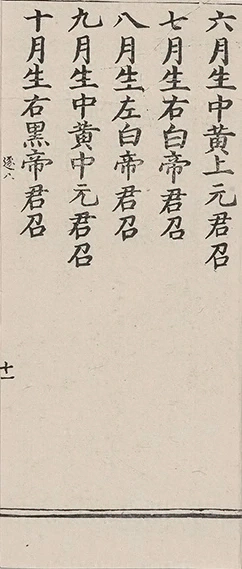 六月生中黄上元君召
七月生右白帝君召
八月生左白帝君召
九月生中黄中元君召
十月生右黑帝君召
遂八
十一